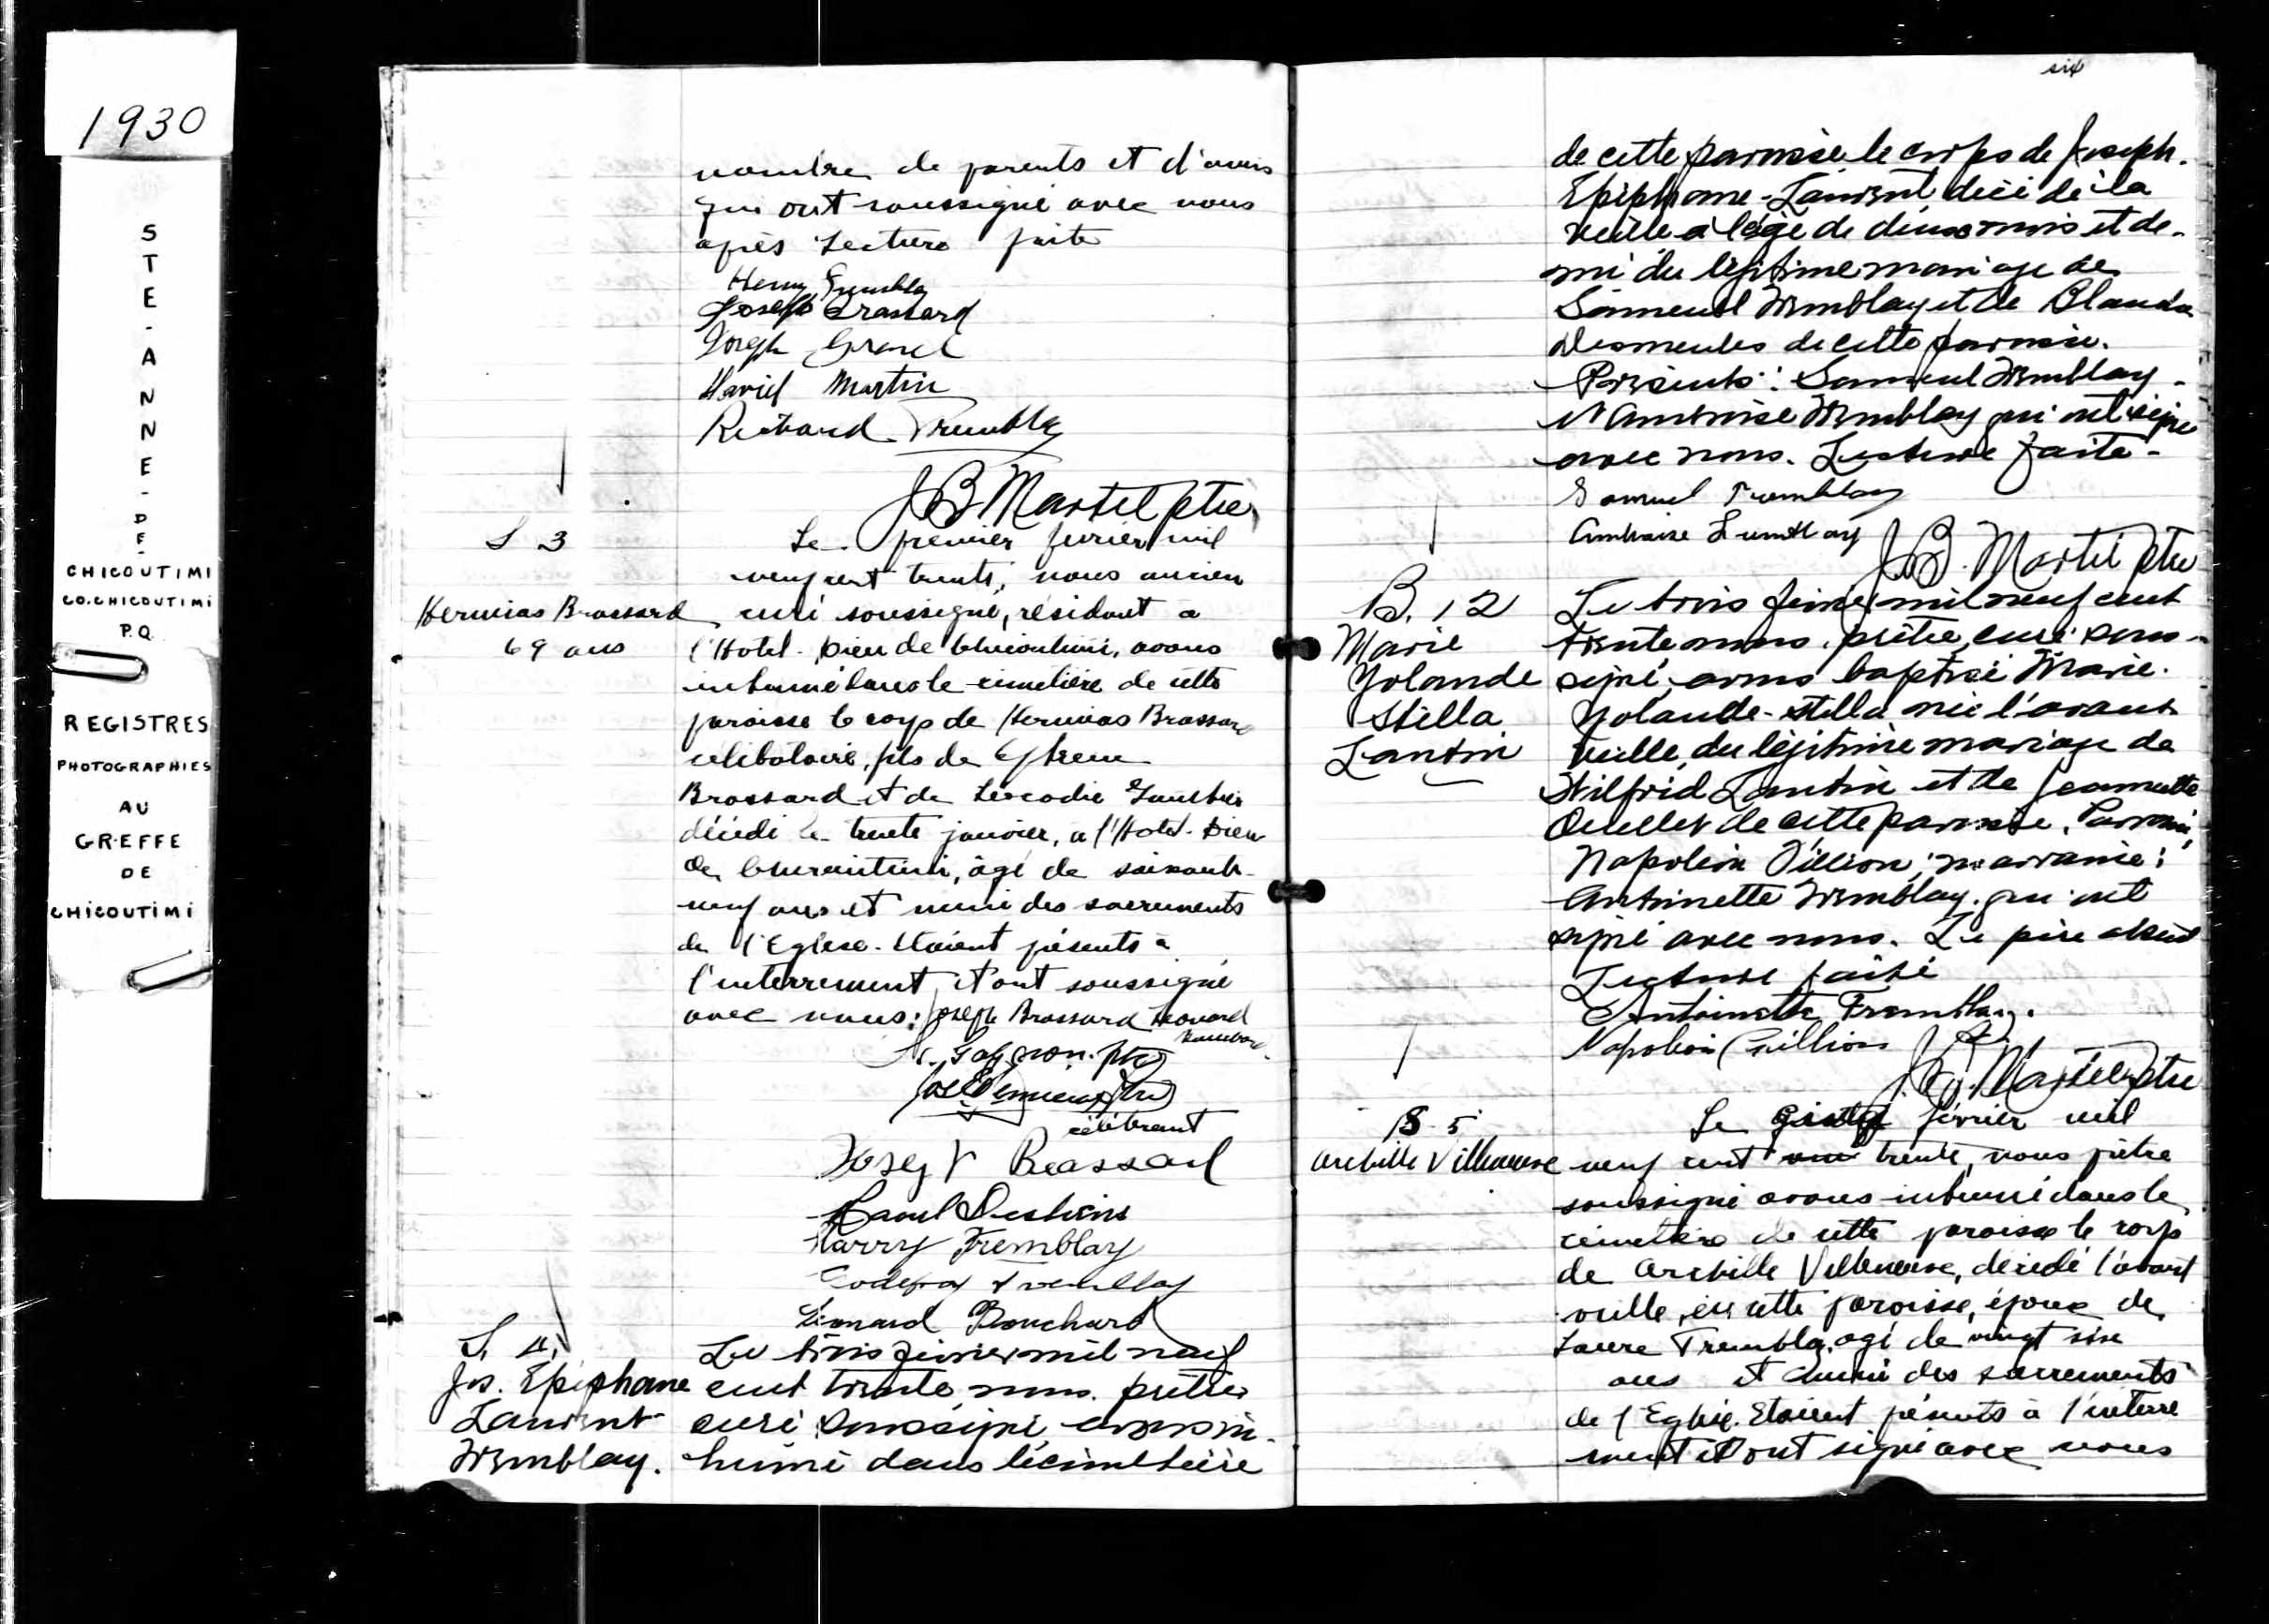 1930
STE-ANNE-DE-
CHICOUTIMI
CO. CHICOUTIMI
P.Q.
REGISTRES
PHOTOGRAPHIES
AU
GREFFE
DE
CHICOUTIMI
nombre de parents et d'amis
qui ont soussigné avec nous
après lecture faite
Henry Tremblay
Joseph Brassard
Joseph
David Martin
Richard Tremblay
JB Martel ptre
S 3
Hermias Brassard
69 ans
Le premier fevrier mil
neuf cent trente, nous ancien
curé soussigné, résidant à
l'Hotel-Dieu de Chicoutimi, avons
inhumé dans le cimetière de cette
paroisse le corps de Hermias Brassard
célibataire, fils de Ephrem
Brassard et de Léocadie Gauthier
décédé le trente janvier, à l'Hotel-Dieu
de Chicoutimi, âgé de soixante-
neuf ans et muni des sacrements
de l'Eglise. Etaient présents à
l'enterrement et ont soussigné
avec nous: Joseph Brassard Leonard
Bouchard
N. Gagnon ptre
célébrant
Joseph Brassard
Raoul Deschênes
Harry Tremblay
Godefroy Tremblay
Léonard Bouchard
S. 4.
Jos. Epiphane
Laurent
Tremblay.
Le trois février mil neuf
cent trente nous prêtre
curé soussigné avons in-
humé dans le cimetière
six
de cette paroisse le corps de Joseph-
Epiphane-Laurent, décédé la
veille à l'âge de deux mois et de-
mi du légitime mariage de
Samuel Tremblay et de Blanche
Desmeules de cette paroisse.
Présents: Samuel Tremblay
et Ambroise Tremblay qui ont signé
avec nous. Lecture faite-
Samuel Tremblay
Ambroise Tremblay
J.B. Martel Ptre
B. 12
Marie
Yolande
Stella
Lantin
Le trois février mil neuf cent
trente nous, prêtre, curé sous-
signé, avons baptisé Marie-
Yolande-Stella née l'avant
veille, du légitime mariage de
Wilfrid Lantin et de Jeannette
Ouellet de cette paroisse. Parrain,
Napoléon Pillion; marraine:
Antoinette Tremblay. qui ont
signé avec nous. Le père absent
Lecture faite
Antoinette Tremblay.
Napoléon
J.B. Martel Ptre
S. 5
Archille Villeneuve
Le février mil
neuf cent trente, nous prêtre
soussigné avons inhumé dans le
cimetière de cette paroisse le corps
de Archille Villeneuve, décédé l'avant
veille, en cette paroisse, époux de
Laure Tremblay, agé de vingt six
ans et muni des sacrements
de l'Eglise. Etaient présents à l'enterre
ment et ont signé avec nous